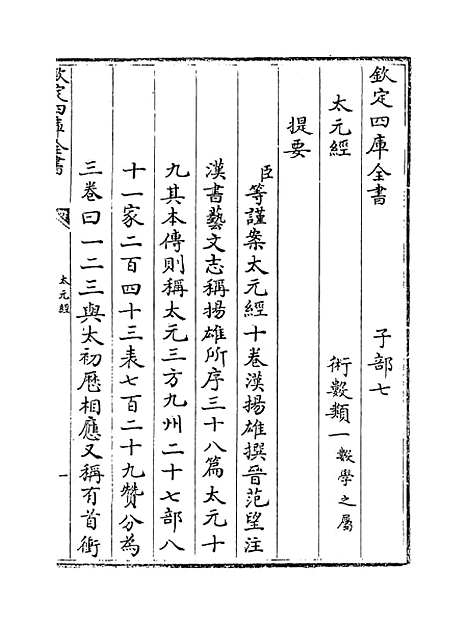 欽定四庫全書　　子部七
太元經　　術數類一數學之屬
提要
臣等謹案太元經十卷漢揚雄撰晉范望注
漢書藝文志稱揚雄所序三十八篇太元十
九其本傳則稱太元三方九州二十七部八
十一家二百四十三表七百二十九贊分為
三卷曰一二三與太初歷相應又稱有首衝
欽定四庫全書
太元經
一